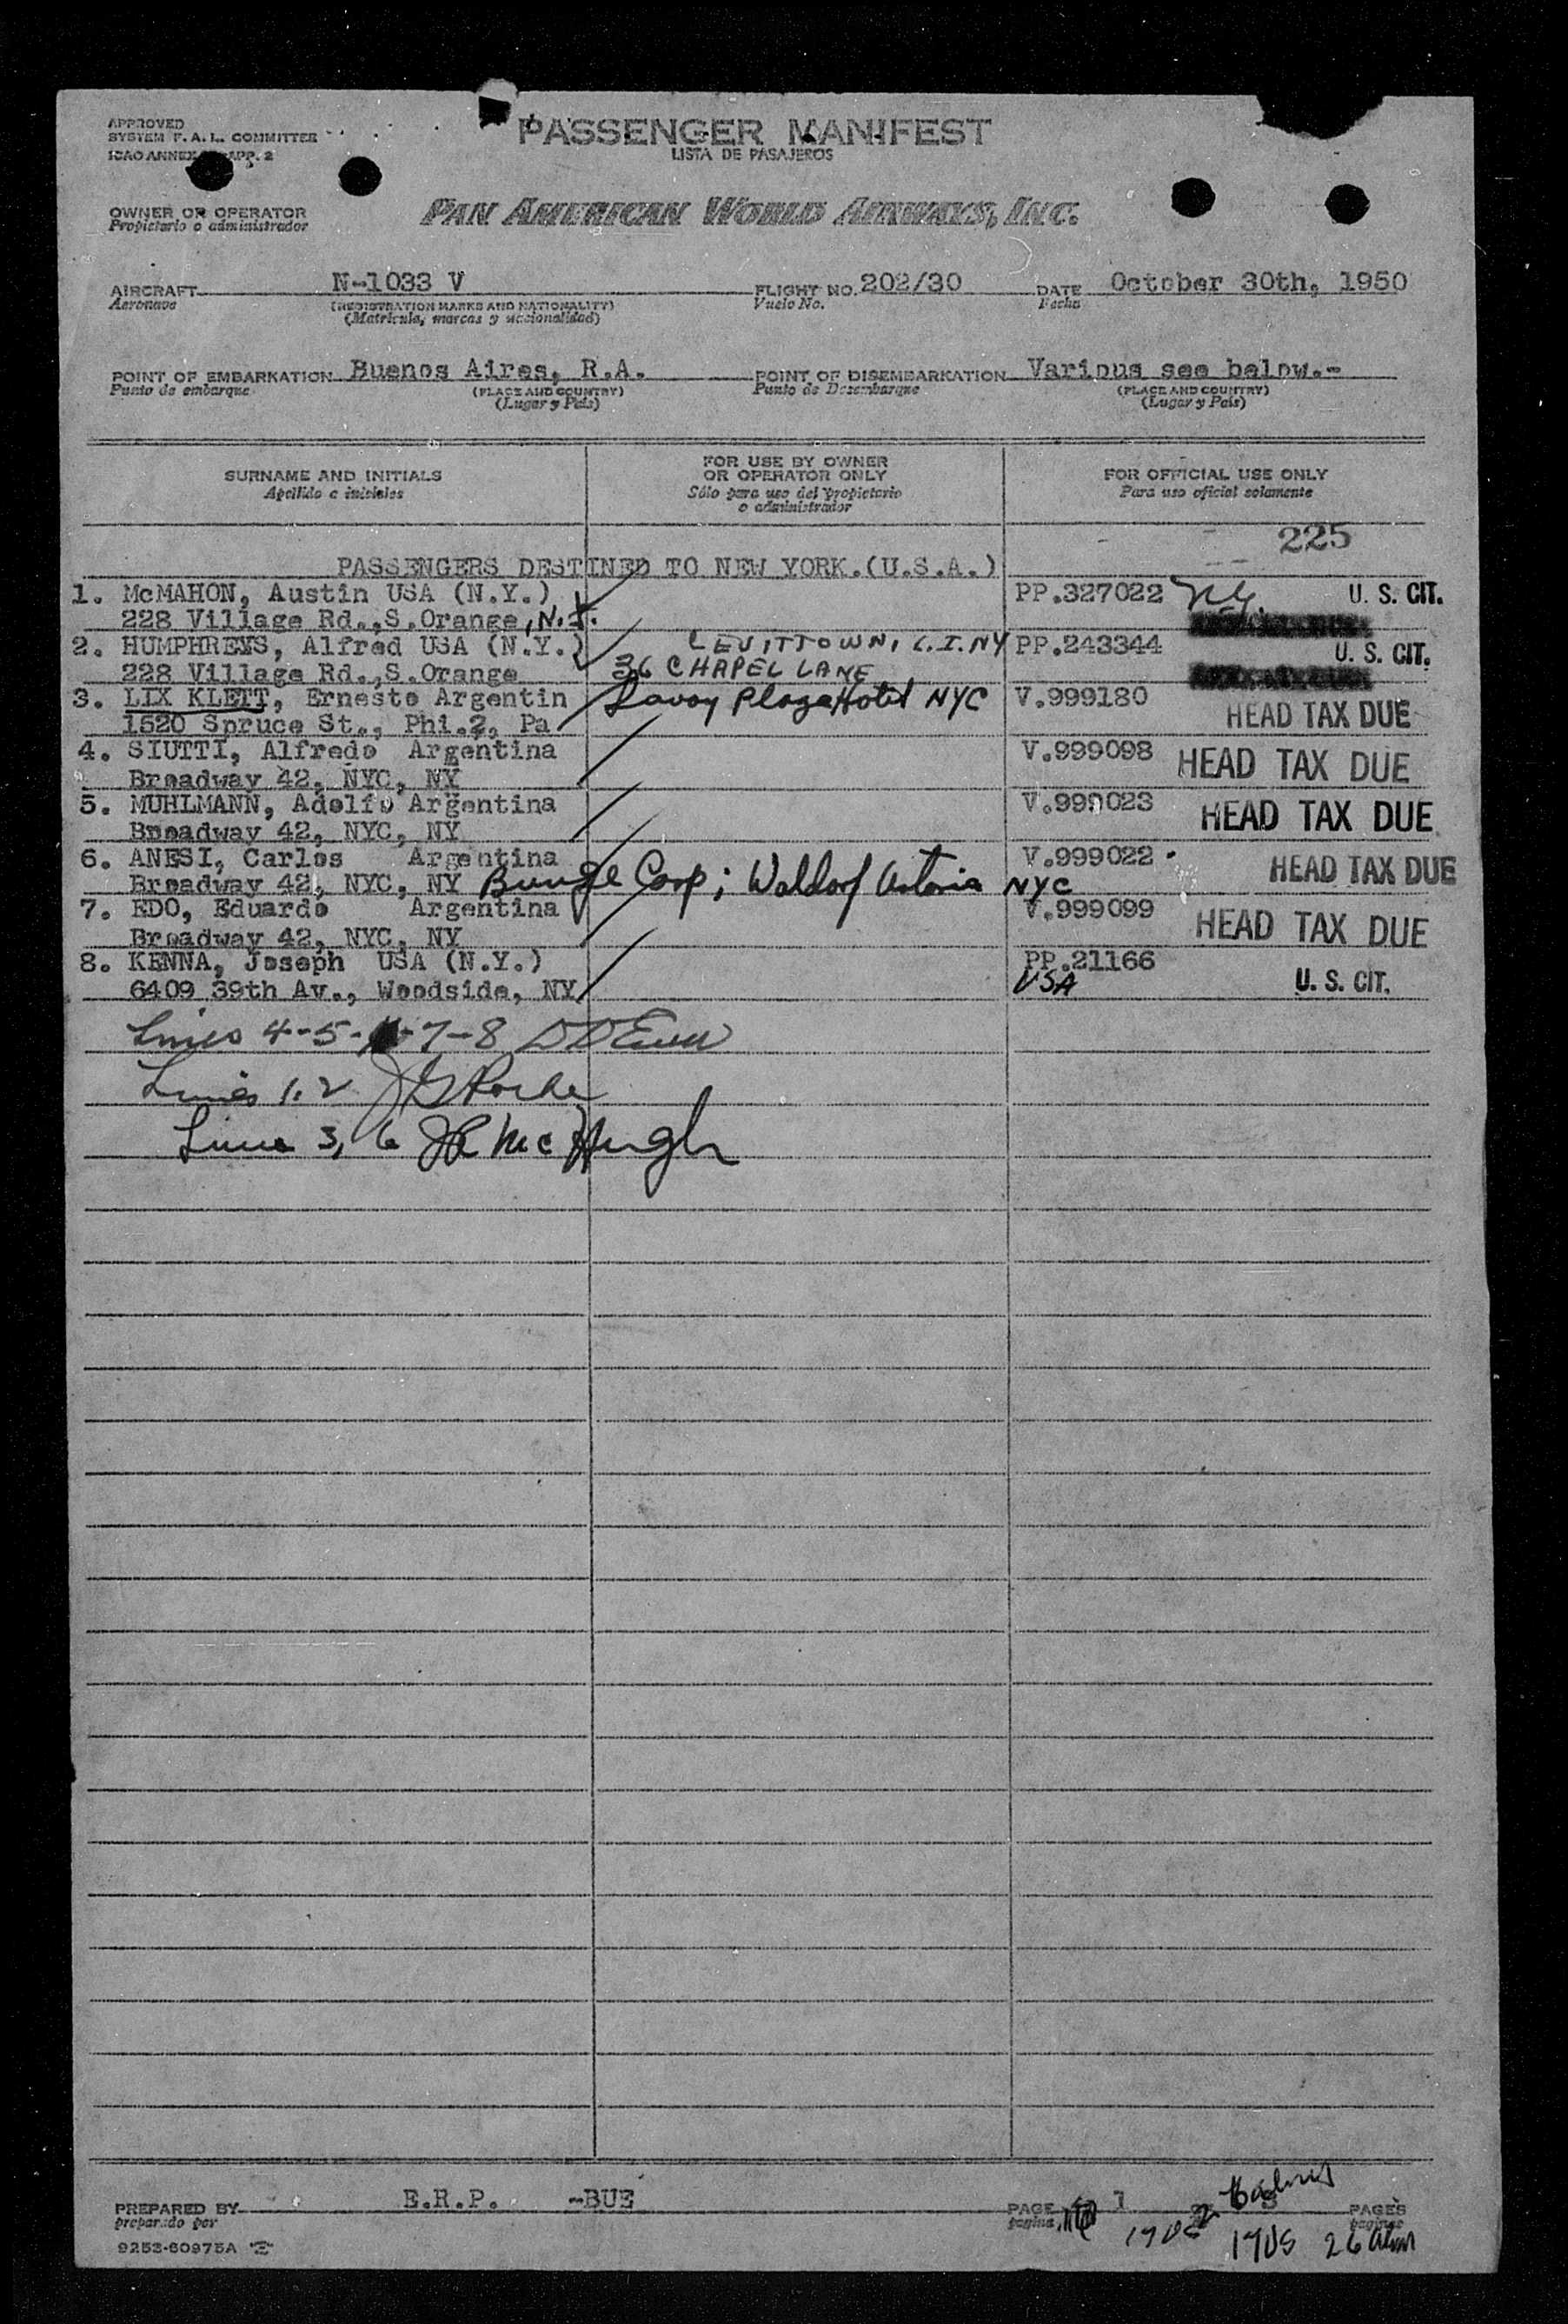 APPROVED
SYSTEM F. A. L. COMMITTEE
ICAO ANNEX APP. 2
PASSENGER MANIFEST
LISTA DE PASAJEROS
OWNER OR OPERATOR
Propietario o administrador
PAN AMERICAN WORLD AIRWAYS, INC.
AIRCRAFT N-1033 V FLIGHT NO. 202/30 DATE October 30th, 1950
Aeronave (REGISTRATION MARKS AND NATIONALITY) Vuelo No. Fecha
(Matrícula, marcas y nacionalidad)
POINT OF EMBARKATION Buenos Aires, R.A. POINT OF DISEMBARKATION Various see below.-
Punto de embarque (PLACE AND COUNTRY) Punto de Desembarque (PLACE AND COUNTRY)
(Lugar y País) (Lugar y País)
SURNAME AND INITIALS
Apellido e iniciales
FOR USE BY OWNER
OR OPERATOR ONLY
Sólo para uso del propietario
o administrador
FOR OFFICIAL USE ONLY
Para uso oficial solamente
225
PASSENGERS DESTINED TO NEW YORK.(U.S.A.)
1. McMAHON, Austin USA (N.Y.) PP.327022 U. S. CIT.
228 Village Rd.,S.Orange, N.J.
2. HUMPHREYS, Alfred USA (N.Y.) LEVITTOWN, L.I. NY PP.243344 U. S. CIT.
228 Village Rd.,S.Orange 36 CHAPEL LANE
3. LIX KLETT, Ernesto Argentin Savoy Plaza Hotel NYC V.999180 HEAD TAX DUE
1520 Spruce St., Phi.2, Pa
4. SIUTTI, Alfredo Argentina V.999098 HEAD TAX DUE
Broadway 42, NYC, NY
5. MUHLMANN, Adolfo Argentina V.999023 HEAD TAX DUE
Broadway 42, NYC, NY
6. ANESI, Carlos Argentina V.999022 HEAD TAX DUE
Broadway 42, NYC, NY Bunge Corp; Waldorf Astoria NYC
7. EDO, Eduardo Argentina V.999099 HEAD TAX DUE
Broadway 42, NYC, NY
8. KENNA, Joseph USA (N.Y.) PP.21166
6409 39th Av., Woodside, NY USA U. S. CIT.
Lines 4-5- 7-8
Lines 1.2 JG Roche
Lines 3, 6 JR McHugh
PREPARED BY E.R.P. -BUE PAGE 1 PAGES
preparado por página páginas
9253-60975A 1705 26